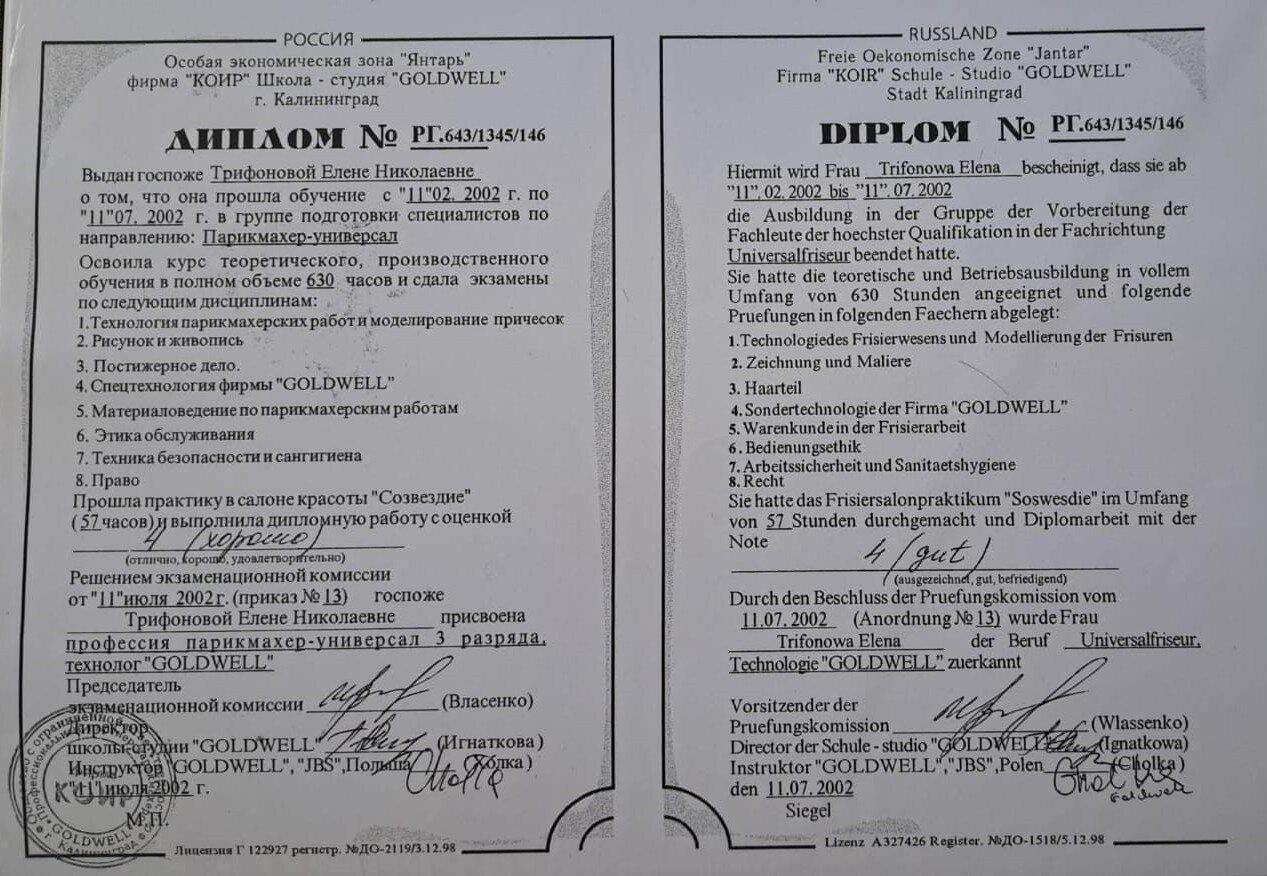 РОССИЯ
Особая экономическая зона "Янтарь"
фирма "КОИР" Школа - студия "GOLDWELL"
г. Калининград
ДИПЛОМ № РГ.643/1345/146
Выдан госпоже Трифоновой Елене Николаевне
о том, что она прошла обучение с "11"02. 2002 г. по
"11"07. 2002 г. в группе подготовки специалистов по
направлению: Парикмахер-универсал
Освоила курс теоретического, производственного
обучения в полном объеме 630 часов и сдала экзамены
по следующим дисциплинам:
1.Технология парикмахерских работ и моделирование причесок
2. Рисунок и живопись
3. Постижерное дело.
4. Спецтехнология фирмы "GOLDWELL"
5. Материаловедение по парикмахерским работам
6. Этика обслуживания
7. Техника безопасности и сангигиена
8. Право
Прошла практику в салоне красоты "Созвездие"
( 57 часов) и выполнила дипломную работу с оценкой
4 (хорошо)
(отлично, хорошо, удовлетворительно)
Решением экзаменационной комиссии
от "11"июля 2002г. (приказ №13) госпоже
Трифоновой Елене Николаевне присвоена
профессия парикмахер-универсал 3 разряда,
технолог "GOLDWELL"
Председатель
экзаменационной комиссии (Власенко)
Директор
школы-студии "GOLDWELL" (Игнаткова)
Инструктор "GOLDWELL", "JBS", Польша (Холка)
"11"июля 2002 г.
М.П.
КОИР
GOLDWELL
г. Калининград
Лицензия Г 122927 регистр. №ДО-2119/3.12.98
RUSSLAND
Freie Oekonomische Zone "Jantar"
Firma "KOIR" Schule - Studio "GOLDWELL"
Stadt Kaliningrad
DIPLOM № РГ.643/1345/146
Hiermit wird Frau Trifonowa Elena bescheinigt, dass sie ab
"11". 02. 2002 bis "11". 07. 2002
die Ausbildung in der Gruppe der Vorbereitung der
Fachleute der hoechster Qualifikation in der Fachrichtung
Universalfriseur beendet hatte.
Sie hatte die teoretische und Betriebsausbildung in vollem
Umfang von 630 Stunden angeeignet und folgende
Pruefungen in folgenden Faechern abgelegt:
1.Technologiedes Frisierwesens und Modellierung der Frisuren
2. Zeichnung und Maliere
3. Haarteil
4. Sondertechnologie der Firma "GOLDWELL"
5. Warenkunde in der Frisierarbeit
6. Bedienungsethik
7. Arbeitssicherheit und Sanitaetshygiene
8. Recht
Sie hatte das Frisiersalonpraktikum "Soswesdie" im Umfang
von 57 Stunden durchgemacht und Diplomarbeit mit der
Note
4 (gut)
(ausgezeichnet, gut, befriedigend)
Durch den Beschluss der Pruefungskomission vom
11.07. 2002 (Anordnung № 13) wurde Frau
Trifonowa Elena der Beruf Universalfriseur,
Technologie "GOLDWELL" zuerkannt
Vorsitzender der
Pruefungskomission (Wlassenko)
Director der Schule - studio "GOLDWELL" (Ignatkowa)
Instruktor "GOLDWELL", "JBS", Polen (Cholka)
Goldwell
den 11.07. 2002
Siegel
Lizenz A327426 Register. №ДО-1518/5.12.98